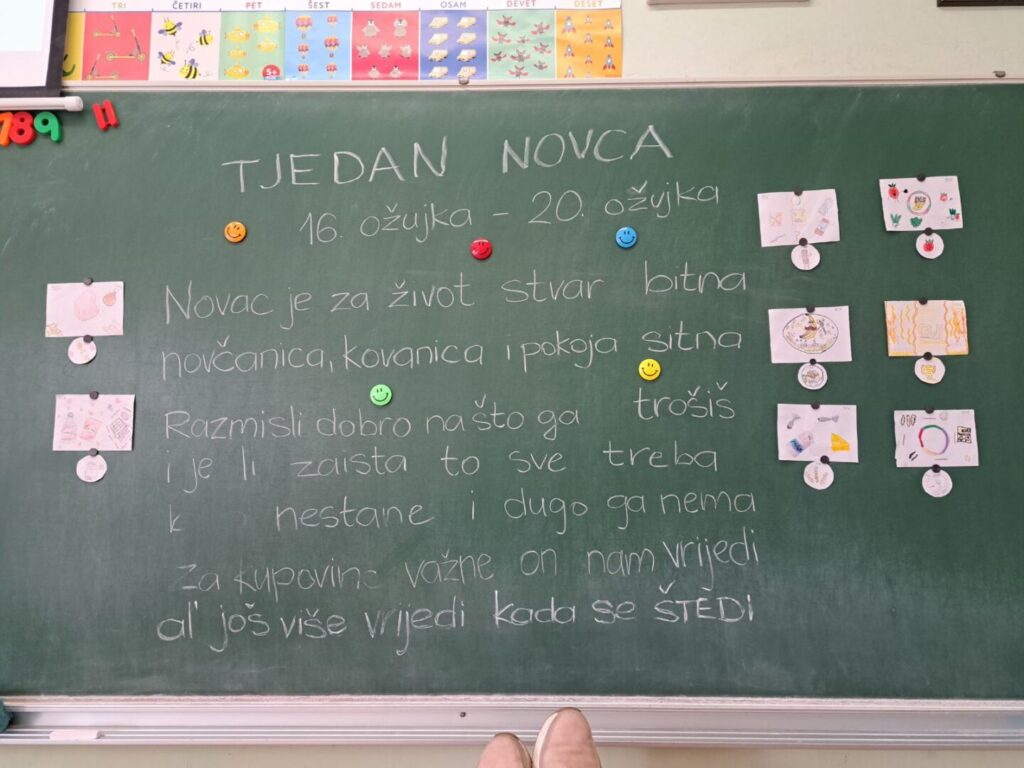 TRI ČETIRI PET ŠEST SEDAM OSAM DEVET DESET
5+
789 11
TJEDAN NOVCA
16. ožujka - 20. ožujka
Novac je za život stvar bitna
novčanica, kovanica i pokoja sitna
Razmisli dobro na što ga trošiš
i je li zaista to sve treba
nestane i dugo ga nema
Za kupovine važne on nam vrijedi
al' još više vrijedi kada se ŠTEDI